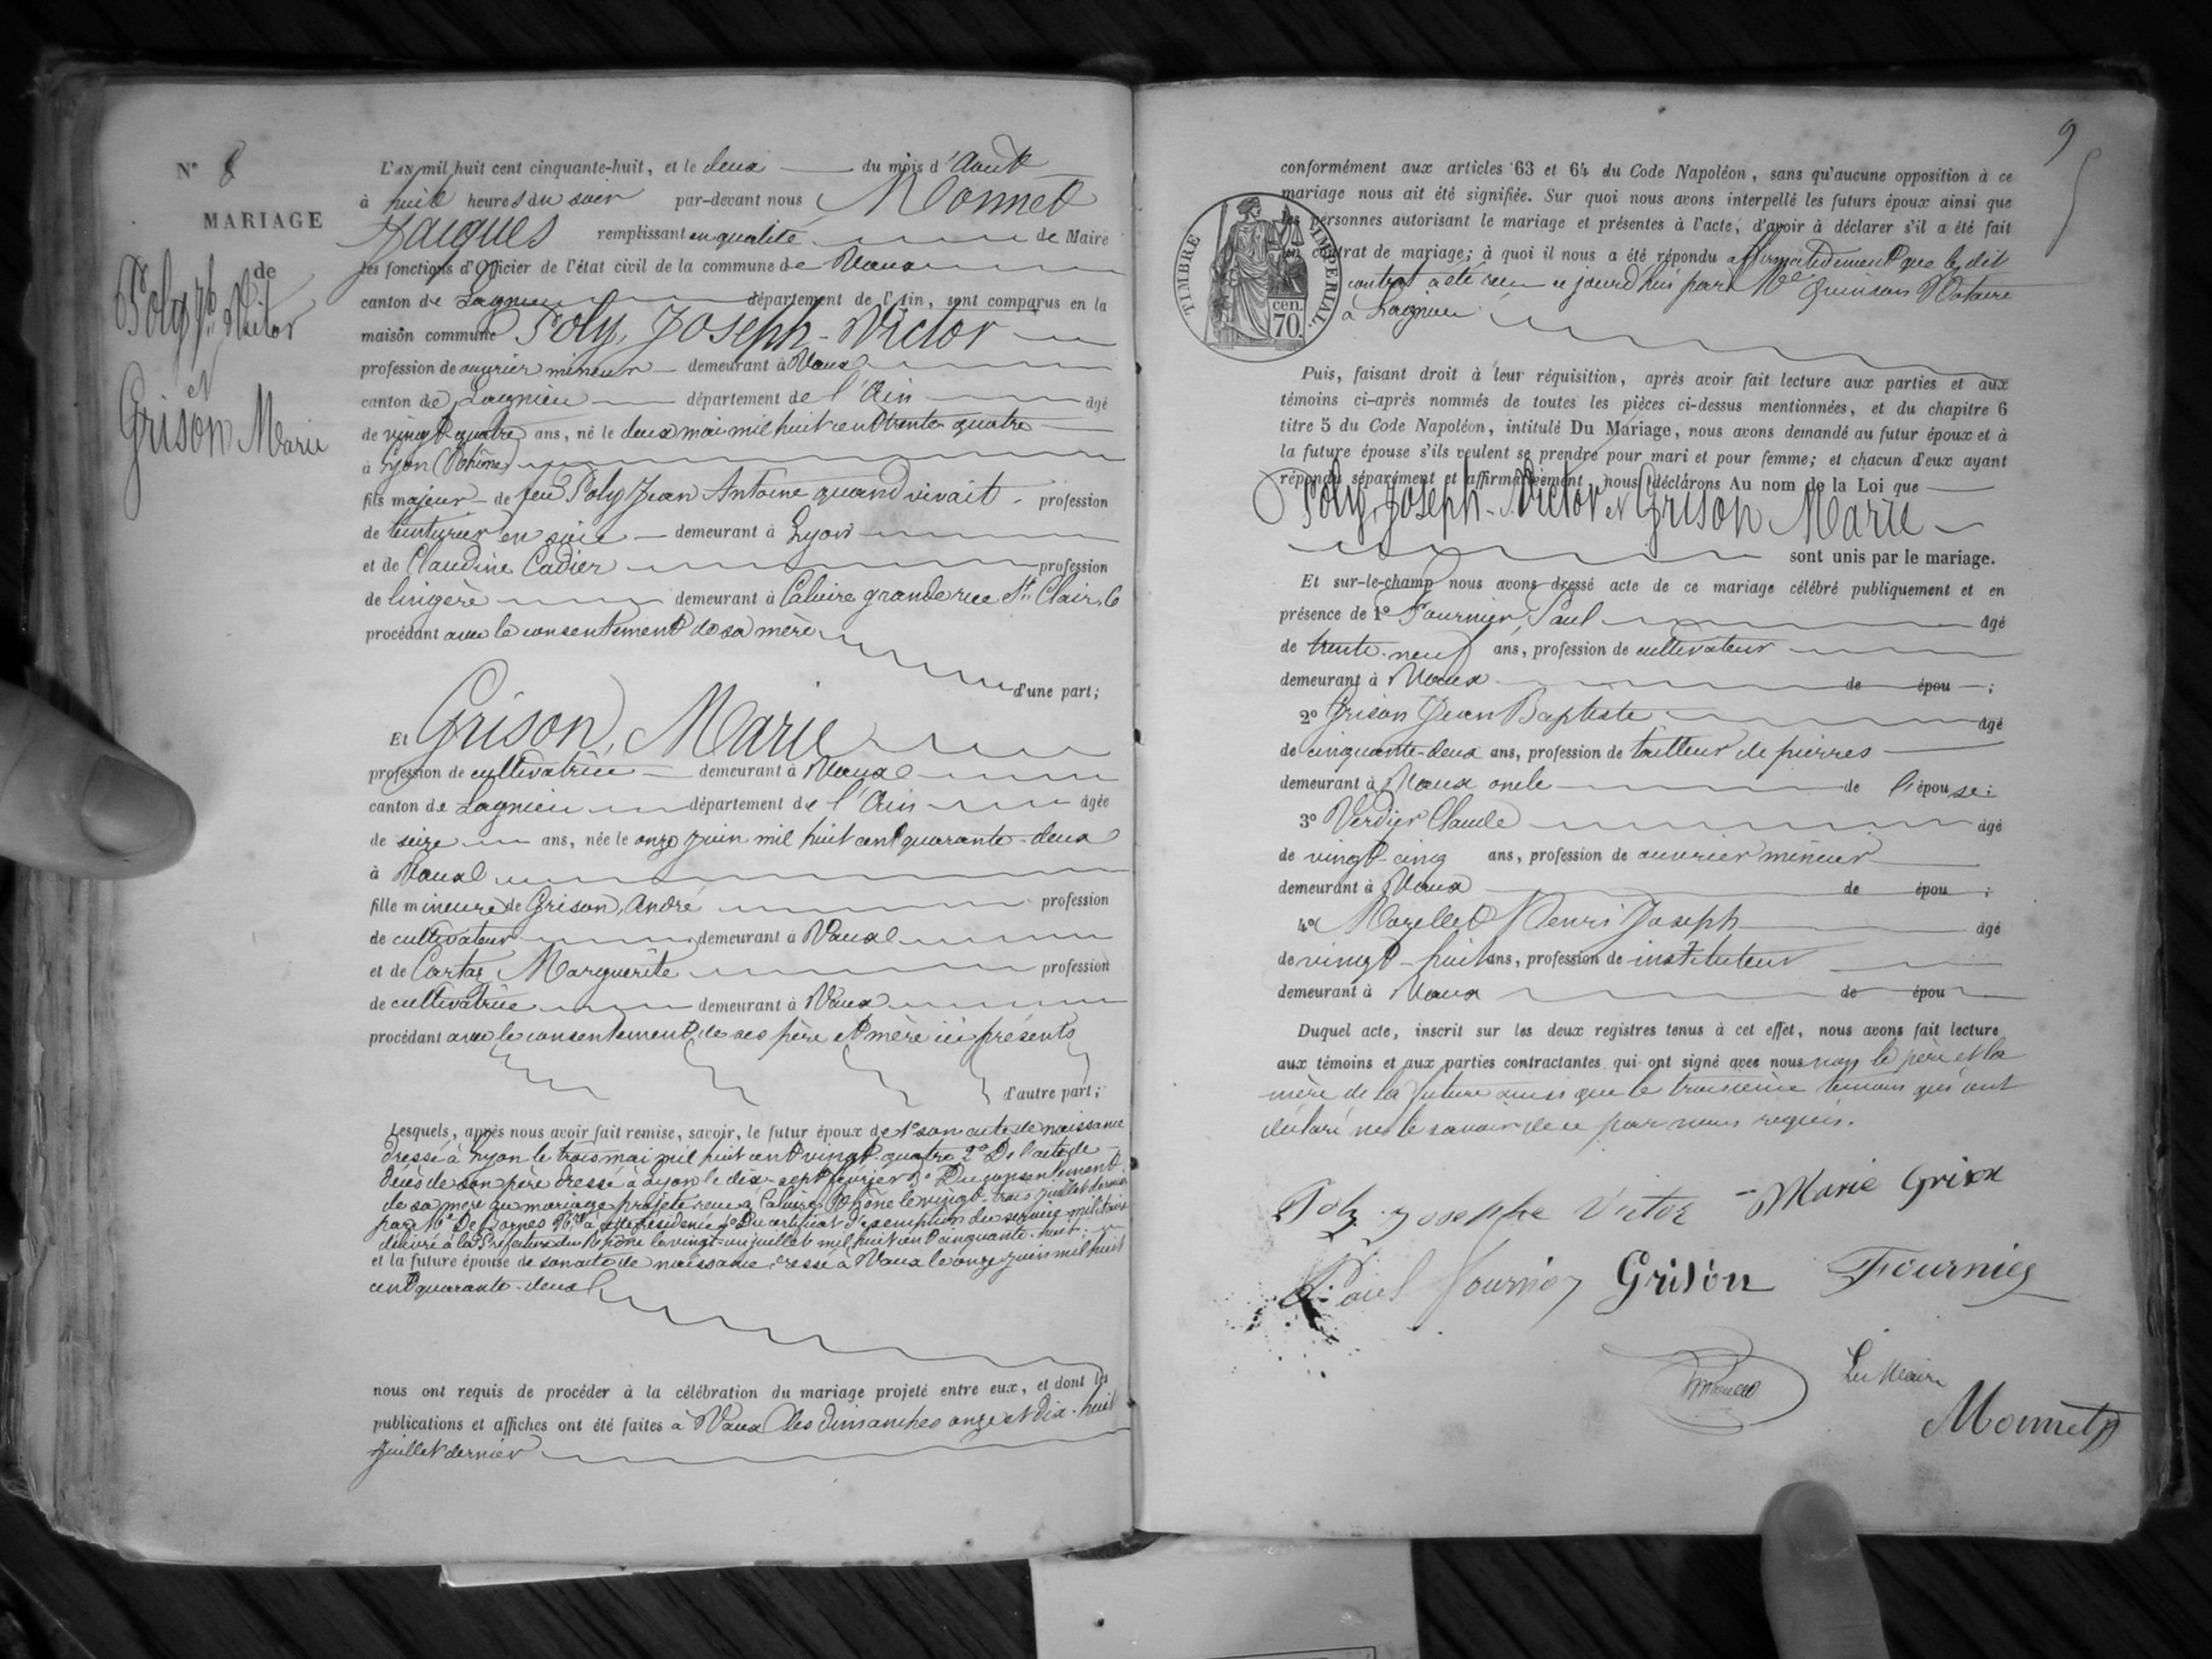 N° 8
MARIAGE
de
Poly Jh Victor
et
Grison Marie
L'AN mil huit cent cinquante-huit, et le deux du mois d'Août
à huit heures du soir par-devant nous Monnet
Jacques remplissant en qualité de Maire
les fonctions d'Officier de l'état civil de la commune de Vaux
canton de Lagnieu département de l'Ain, sont comparus en la
maison commune Poly, Joseph-Victor
profession de ouvrier mineur demeurant à Vaux
canton de Lagnieu département de l'Ain âgé
de vingt quatre ans, né le deux mai mil huit cent trente quatre
à Lyon (Rhône)
fils majeur de feu Poly Jean Antoine quand vivait profession
de teinturier en soie demeurant à Lyon
et de Claudine Cadier profession
de lingère demeurant à Caluire grande rue St. Clair, 6
procédant avec le consentement de sa mère
d'une part;
Et Grison, Marie
profession de cultivatrice demeurant à Vaux
canton de Lagnieu département de l'Ain âgée
de seize ans, née le onze juin mil huit cent quarante-deux
à Vaux
fille mineure de Grison, André profession
de cultivateur demeurant à Vaux
et de Cartaz Marguerite profession
de cultivatrice demeurant à Vaux
procédant avec le consentement de ses père et mère ici présents
d'autre part;
Lesquels, après nous avoir fait remise, savoir, le futur époux de 1° son acte de naissance
dressé à Lyon le trois mai mil huit cent vingt-quatre 2° De l'acte de
décès de son père dressé à Lyon le dix-sept février 3° Du consentement
de sa mère au mariage projeté reçu à Caluire Rhône le vingt-trois juillet dernier
par Me De Bornes Nre à cette résidence 4° Du certificat d'exemption du service militaire
délivré à la Préfecture du Rhône le vingt-un juillet mil huit cent cinquante-huit;
et la future épouse de son acte de naissance dressé à Vaux le onze juin mil huit
cent quarante-deux
nous ont requis de procéder à la célébration du mariage projeté entre eux, et dont les
publications et affiches ont été faites à Vaux les dimanches onze et dix-huit
juillet dernier
9
conformément aux articles 63 et 64 du Code Napoléon, sans qu'aucune opposition à ce
mariage nous ait été signifiée. Sur quoi nous avons interpellé les futurs époux ainsi que
les personnes autorisant le mariage et présentes à l'acte, d'avoir à déclarer s'il a été fait
un contrat de mariage; à quoi il nous a été répondu affirmativement que le dit
contrat a été reçu ce jourd'hui par Me Quinson Notaire
à Lagnieu
TIMBRE IMPERIAL.
cen.
70.
Puis, faisant droit à leur réquisition, après avoir fait lecture aux parties et aux
témoins ci-après nommés de toutes les pièces ci-dessus mentionnées, et du chapitre 6
titre 5 du Code Napoléon, intitulé Du Mariage, nous avons demandé au futur époux et à
la future épouse s'ils veulent se prendre pour mari et pour femme; et chacun d'eux ayant
répondu séparément et affirmativement, nous déclarons Au nom de la Loi que
Poly, Joseph-Victor et Grison Marie
sont unis par le mariage.
Et sur-le-champ nous avons dressé acte de ce mariage célébré publiquement et en
présence de 1° Fournier, Paul âgé
de trente-neuf ans, profession de cultivateur
demeurant à Vaux de épou ;
2° Grison Jean Baptiste âgé
de cinquante-deux ans, profession de tailleur de pierres
demeurant à Vaux oncle de l'épouse;
3° Verdier Claude âgé
de vingt-cinq ans, profession de ouvrier mineur
demeurant à Vaux de épou ;
4° Morellet Henri Joseph âgé
de vingt-huit ans, profession de instituteur
demeurant à Vaux de épou
Duquel acte, inscrit sur les deux registres tenus à cet effet, nous avons fait lecture
aux témoins et aux parties contractantes qui ont signé avec nous non le père et la
mère de la future ainsi que le troisième témoin qui ont
déclaré ne le savoir de ce par nous requis.
Poly Josephe Victor Marie Grison
Paul fournier Grison Fournier
Le Maire
Monnet